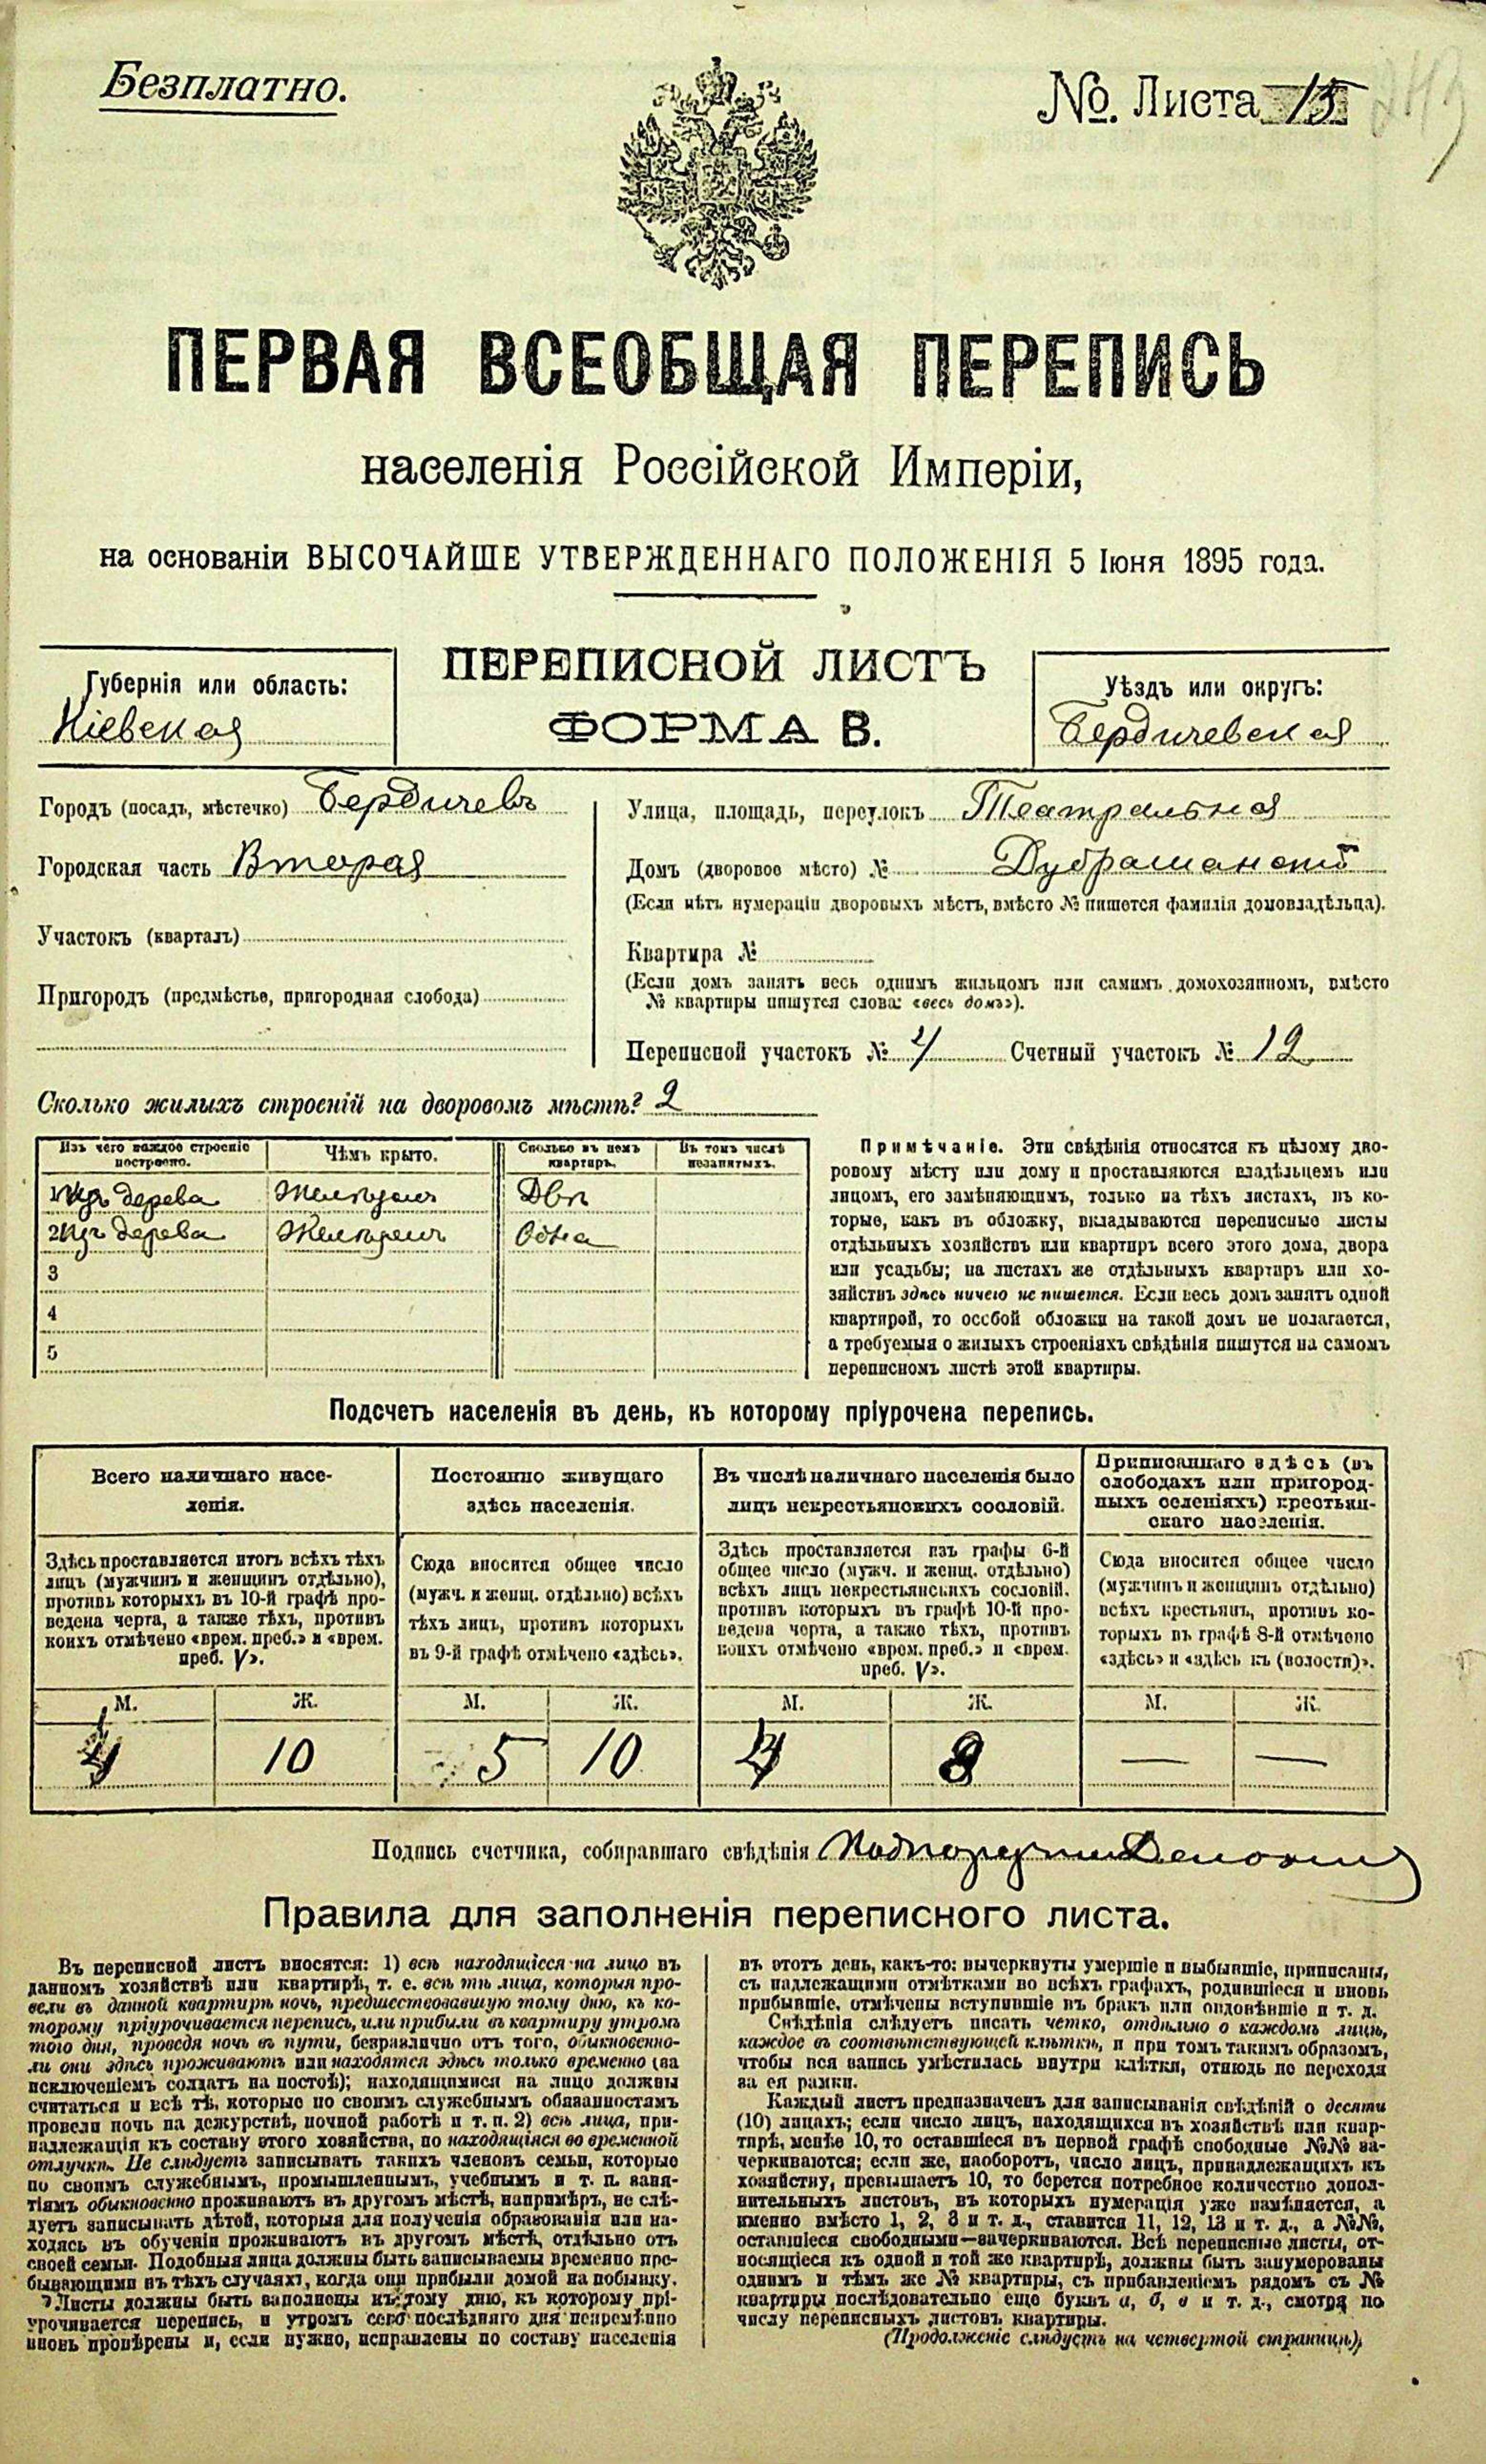 Безплатно.
№. Листа 15
ПЕРВАЯ ВСЕОБЩАЯ ПЕРЕПИСЬ
населенія Россійской Имперіи,
на основаніи ВЫСОЧАЙШЕ УТВЕРЖДЕННАГО ПОЛОЖЕНІЯ 5 Іюня 1895 года.
ПЕРЕПИСНОЙ ЛИСТЪ
ФОРМА В.
Губернія или область:
Кіевская
Уѣздъ или округъ:
Бердичевская
Городъ (посадъ, мѣстечко) Бердичевъ
Городская часть Вторая
Участокъ (кварталъ)
Пригородъ (предмѣстье, пригородная слобода)
Улица, площадь, переулокъ Театральная
Домъ (дворовое мѣсто) №
(Если нѣтъ нумераціи дворовыхъ мѣстъ, вмѣсто № пишется фамилія домовладѣльца).
Квартира №
(Если домъ занятъ весь однимъ жильцомъ или самимъ домохозяиномъ, вмѣсто
№ квартиры пишутся слова: «весь домъ»).
Переписной участокъ № 4 Счетный участокъ № 12
Сколько жилыхъ строеній на дворовомъ мѣстѣ? 2
Изъ чего каждое строеніе построено.
Чѣмъ крыто.
Сколько въ немъ квартиръ.
Въ томъ числѣ незанятыхъ.
1 Изъ дерева Желѣзомъ Двѣ
2 Изъ дерева Желѣзомъ Одна
3
4
5
Примѣчаніе. Эти свѣдѣнія относятся къ цѣлому дво-
ровому мѣсту или дому и проставляются владѣльцемъ или
лицомъ, его замѣняющимъ, только на тѣхъ листахъ, въ ко-
торые, какъ въ обложку, вкладываются переписные листы
отдѣльныхъ хозяйствъ или квартиръ всего этого дома, двора
или усадьбы; на листахъ же отдѣльныхъ квартиръ или хо-
зяйствъ здѣсь ничего не пишется. Если весь домъ занятъ одной
квартирой, то особой обложки на такой домъ не полагается,
а требуемыя о жилыхъ строеніяхъ свѣдѣнія пишутся на самомъ
переписномъ листѣ этой квартиры.
Подсчетъ населенія въ день, къ которому пріурочена перепись.
Всего наличнаго насе-
ленія.
Здѣсь проставляется итогъ всѣхъ тѣхъ
лицъ (мужчинъ и женщинъ отдѣльно),
противъ которыхъ въ 10-й графѣ про-
ведена черта, а также тѣхъ, противъ
коихъ отмѣчено «врем. преб.» и «врем.
преб. V».
Постоянно живущаго
здѣсь населенія.
Сюда вносится общее число
(мужч. и женщ. отдѣльно) всѣхъ
тѣхъ лицъ, противъ которыхъ
въ 9-й графѣ отмѣчено «здѣсь».
Въ числѣ наличнаго населенія было
лицъ некрестьянскихъ сословій.
Здѣсь проставляется изъ графы 6-й
общее число (мужч. и женщ. отдѣльно)
всѣхъ лицъ некрестьянскихъ сословій,
противъ которыхъ въ графѣ 10-й про-
ведена черта, а также тѣхъ, противъ
коихъ отмѣчено «врем. преб.» и «врем.
преб. V».
Приписаннаго здѣсь (въ
слободахъ или пригород-
ныхъ селеніяхъ) крестьян-
скаго населенія.
Сюда вносится общее число
(мужчинъ и женщинъ отдѣльно)
всѣхъ крестьянъ, противъ ко-
торыхъ въ графѣ 8-й отмѣчено
«здѣсь» и «здѣсь къ (волости)».
М. Ж. М. Ж. М. Ж. М. Ж.
4 10 5 10 4 8 — —
Подпись счетчика, собиравшаго свѣдѣнія
Правила для заполненія переписного листа.
Въ переписной листъ вносятся: 1) всѣ находящіеся на лицо въ
данномъ хозяйствѣ или квартирѣ, т. е. всѣ тѣ лица, которыя про-
вели въ данной квартирѣ ночь, предшествовавшую тому дню, къ ко-
торому пріурочивается перепись, или прибыли въ квартиру утромъ
того дня, проведя ночь въ пути, безразлично отъ того, обыкновенно-
ли они здѣсь проживаютъ или находятся здѣсь только временно (за
исключеніемъ солдатъ на постоѣ); находящимися на лицо должны
считаться и всѣ тѣ, которые по своимъ служебнымъ обязанностямъ
провели ночь на дежурствѣ, ночной работѣ и т. п. 2) всѣ лица, при-
надлежащія къ составу этого хозяйства, но находящіяся во временной
отлучкѣ. Не слѣдуетъ записывать такихъ членовъ семьи, которые
по своимъ служебнымъ, промышленнымъ, учебнымъ и т. п. заня-
тіямъ обыкновенно проживаютъ въ другомъ мѣстѣ, напримѣръ, не слѣ-
дуетъ записывать дѣтей, которыя для полученія образованія или на-
ходясь въ обученіи проживаютъ въ другомъ мѣстѣ, отдѣльно отъ
своей семьи. Подобныя лица должны быть записываемы временно пре-
бывающими въ тѣхъ случаяхъ, когда они прибыли домой на побывку.
Листы должны быть заполнены къ тому дню, къ которому прі-
урочивается перепись, и утромъ сего послѣдняго дня непремѣнно
вновь провѣрены и, если нужно, исправлены по составу населенія
въ этотъ день, какъ-то: вычеркнуты умершіе и выбывшіе, приписаны,
съ надлежащими отмѣтками во всѣхъ графахъ, родившіеся и вновь
прибывшіе, отмѣчены вступившіе въ бракъ или овдовѣвшіе и т. д.
Свѣдѣнія слѣдуетъ писать четко, отдѣльно о каждомъ лицѣ,
каждое въ соотвѣтствующей клѣткѣ, и при томъ такимъ образомъ,
чтобы вся запись умѣстилась внутри клѣтки, отнюдь не переходя
за ея рамки.
Каждый листъ предназначенъ для записыванія свѣдѣній о десяти
(10) лицахъ; если число лицъ, находящихся въ хозяйствѣ или квар-
тирѣ, менѣе 10, то оставшіеся въ первой графѣ свободные №№ за-
черкиваются; если же, наоборотъ, число лицъ, принадлежащихъ къ
хозяйству, превышаетъ 10, то берется потребное количество допол-
нительныхъ листовъ, въ которыхъ нумерація уже измѣняется, а
именно вмѣсто 1, 2, 3 и т. д., ставится 11, 12, 13 и т. д., а №№,
оставшіеся свободными—зачеркиваются. Всѣ переписные листы, от-
носящіеся къ одной и той же квартирѣ, должны быть занумерованы
однимъ и тѣмъ же № квартиры, съ прибавленіемъ рядомъ съ №
квартиры послѣдовательно еще буквъ а, б, в и т. д., смотря по
числу переписныхъ листовъ квартиры.
(Продолженіе слѣдуетъ на четвертой страницѣ).